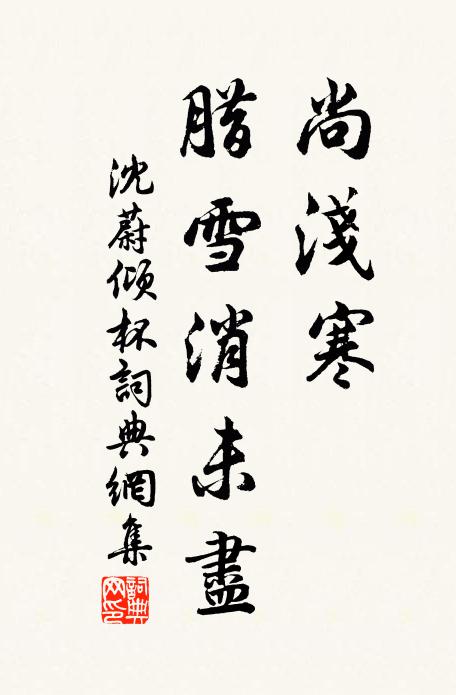 尚淺寒
腊雪消未盡
沈蔚傾杯詞典網集
詞典网印